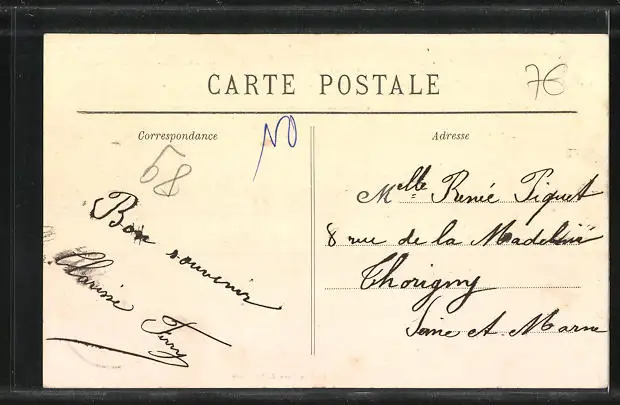 CARTE POSTALE
76
Correspondance
Adresse
68
Bon souvenir
Clarisse
Melle Renée Piquet
8 rue de la Madeleine
Thorigny
Seine et Marne